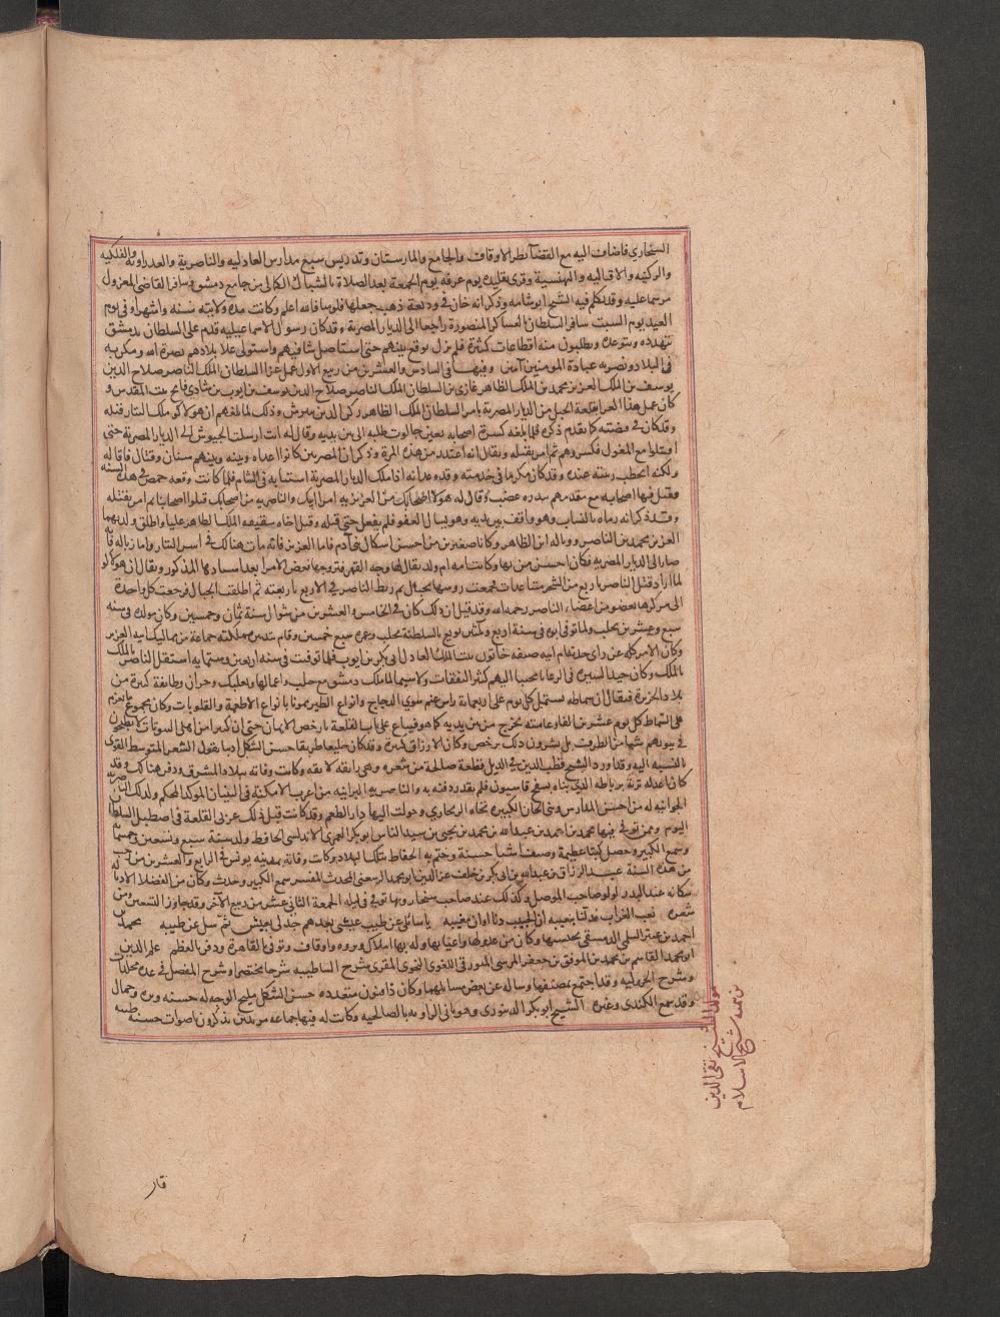 السنجاري فاضاف اليه مع القضا نظر الاوقاف والجامع والمارستان وتدريس سبع مدارس العادليه والناصرية والعدراويه والفلكيه
والركنيه والاقباليه والبهنسية وقرئ تقليده يوم عرفه يوم الجمعة بعد الصلاة بالشباك الكمالى من جامع دمشق وسافر القاضى المعزول
مرسما عليه وقد تكلم فيه الشيخ ابو شامه وذكر انه خان في وديعة ذهب جعلها فلوسا فالله اعلم وكانت مدة ولايته سنه واشهرا وفى يوم
العيد يوم السبت سافر السلطان العساكر المنصورة راجعا الى الديار المصرية وقد كان رسول الاسماعيليه قدم على السلطان بدمشق
يتهدده ويتوعده ويطلبون منه اقطاعات كثيرة فلم يزل يوقع بينهم حتى استاصل شافيهم واستولى على بلادهم نصرة الله ومكر به
فى البلاد ونصر به عبادة المومنين آمين وفيها فى السادس والعشرين من ربيع الاول عمل عزا السلطان الملك الناصر صلاح الدين
يوسف بن الملك العزيز محمد بن الملك الظاهر غازى بن السلطان الملك الناصر صلاح الدين يوسف بن ايوب بن شادي فاتح بيت المقدس و
كان عمل هذا العزا بقلعة الجبل من الديار المصرية بامر السلطان الملك الظاهر ركن الدين بيبرس وذلك لما بلغهم ان هولاكو ملك التتار قتله
وقد كان في قبضته كما تقدم ذكره فلما بلغه كسرة اصحابه بعين جالوت طلبه الى بين يديه وقال له انت ارسلت الجيوش الى الديار المصرية حتى
اقتتلوا مع المغول فكسروهم ثم امر بقتله ويقال انه اعتذر من هذه المرة وذكر ان المصريين كانوا اعداه وبينه وبينهم سنان وقتال فاقاله
ولكنه انحطت رتبته عنده وقد كان مكرما فى خدمته وقد وعد انه اذا ملك الديار المصرية استنابه فى الشام فلما كانت وقعه حمص في هذه السنه
وقتل فيها اصحابه مع مقدمهم بيدره غضب وقال له هولا اصحابك من العزيزيه امرا ابيك والناصريه من اصحابك قتلوا اصحابنا ثم امر بقتله
وقد ذكر انه رماه بالنشاب وهو واقف بين يديه وهو يسال العفو فلم يفعل حتى قتله وقتل اخاه شقيقه الملك الظاهر عليا واطلق ولديهما
العزيز محمد بن الناصر وزباله ابن الظاهر وكانا صغيرين من احسن اشكال بنى آدم فاما العزيز فانه مات هنالك في اسر التتار واما زباله فانه
صار الى الديار المصريه فكان احسن من بها وكانت امه ام ولد يقال لها وجه القمر فتزوجها بعض الامرا بعد استاذها المذكور ويقال ان هولاكو
لما اراد قتل الناصر اربع من الشجر متباعدات فجمعت روسها بحبال ثم ربط الناصر في الاربع باربعته ثم اطلقت الحبال فرجعت كل واحدة
الى مركزها بعضو من اعضاء الناصر رحمه الله وقد قيل ان ذلك كان في الخامس والعشرين من شوال سنة ثمان وخمسين وكان مولده فى سنه
سبع وعشرين بحلب ولما توفى ابوه فى سنة اربع وثلاثين بويع بالسلطنة بحلب وعمره سبع سنين وقام بتدبير مملكته جماعة من مماليك ابيه العزيز
وكان الامر كله عن راى جدته ام ابيه صفيه خاتون بنت الملك العادل ابى بكر بن ايوب فلما توفيت فى سنه اربعين وستمايه استقل الناصر بالملك
بالملك وكان جيد السيرة فى الرعايا محببا اليهم كثير النفقات ولا سيما لما ملك دمشق مع حلب واعمالها وبعلبك وحران وطايفة كبيرة من
بلاد الجزيرة فيقال ان سماطه يشتمل كل يوم على اربعماية راس غنم سوى الدجاج وانواع الطير مطبونا بانواع الاطعمة والقلوبات وكان مجموع ما يغرم
على السماط كل يوم عشرين الفا وعامته يخرج من بين يديه كما هو فيباع على باب القلعة بارخص الاثمان حتى ان كثيرا من اهل البيوتات لا يطبخون
في بيوتهم شيئا من الطرف بل يشترون ذلك برخص وكان الارزاق كثيرة وقد كان خليعا ظريفا حسن الشكل اديبا يقول الشعر المتوسط القوى
بالنسبه اليه وقد اورد الشيخ قطب الدين في الذيل قطعة صالحة من شعره وهى رايقه لايقه وكانت وفاته ببلاد المشرق ودفن هناك وقد
كان اعد له تربة برباطه الذى بناه بسفح قاسيون فلم يقدر دفنه به والناصريه البرانيه من اغرب الامكنة فى البنيان الموكد المحكم وكذلك الناصريه
الجوانيه له من احسن المدارس وبنى الخان الكبير تجاه الزنجاري وحولت اليها دار الطعم وقد كانت قبل ذلك غربى القلعة فى اصطبل السلطان
اليوم وممن توفى فيها محمد بن احمد بن عبدالله بن محمد بن يحيى بن سيد الناس ابو بكر اليعمرى الاندلسى الحافظ ولد سنة سبع وتسعين وخمسماية
وسمع الكبير وحصل كتبا عظيمة وصنف اشيا حسنة وختم به الحفاظ بتلك البلاد وكانت وفاته بمدينه تونس فى الرابع والعشرين من رجب
من هذه السنة عبد الرزاق بن عبدالله بن ابى بكر بن خلف عز الدين ابو محمد الرسعنى المحدث المفسر سمع الكبير وحدث وكان من الفضلا الادبا له
مكانه عند البدر لولو صاحب الموصل وكذلك عند صاحب سنجار وبها توفى في ليلة الجمعة الثانى عشر من ربيع الآخر وقد جاوز التسعين ومن
شعره نعب الغراب فدلنا بنعيبه ان الحبيب دنا اوان مغيبه يا سائلى عن طيب عيشى بعدهم جد لى بعيش ثم سل عن طيبه محمد بن
احمد بن عنتر السلمى الدمشقى محتسبها وكان من عدولها واعيانها وله بها املاك وثروة واوقاف وتوفى بالقاهرة ودفن بالمقطم علم الدين
ابو محمد القاسم بن محمد بن الموفق بن جعفر المرسى المورقى اللغوى النحوى المقرى شرح الشاطبيه شرحا مختصرا وشرح المفصل في عدة مجلدات
وشرح الجزوليه وقد اجتمع بمصنفها وساله عن بعض مسايلها وكان ذا فنون متعدده حسن الشكل مليح الوجه له حسنه وبزه وجمال
وقد سمع الكندى وغيره الشيخ ابو بكر الدينورى وهو بانى الزاويه بالصالحيه وكانت له فيها جماعه مريدين يذكرون باصوات حسنه طيبه
مولد الشيخ تقى الدين
بن تيميه شيخ الاسلام
قار